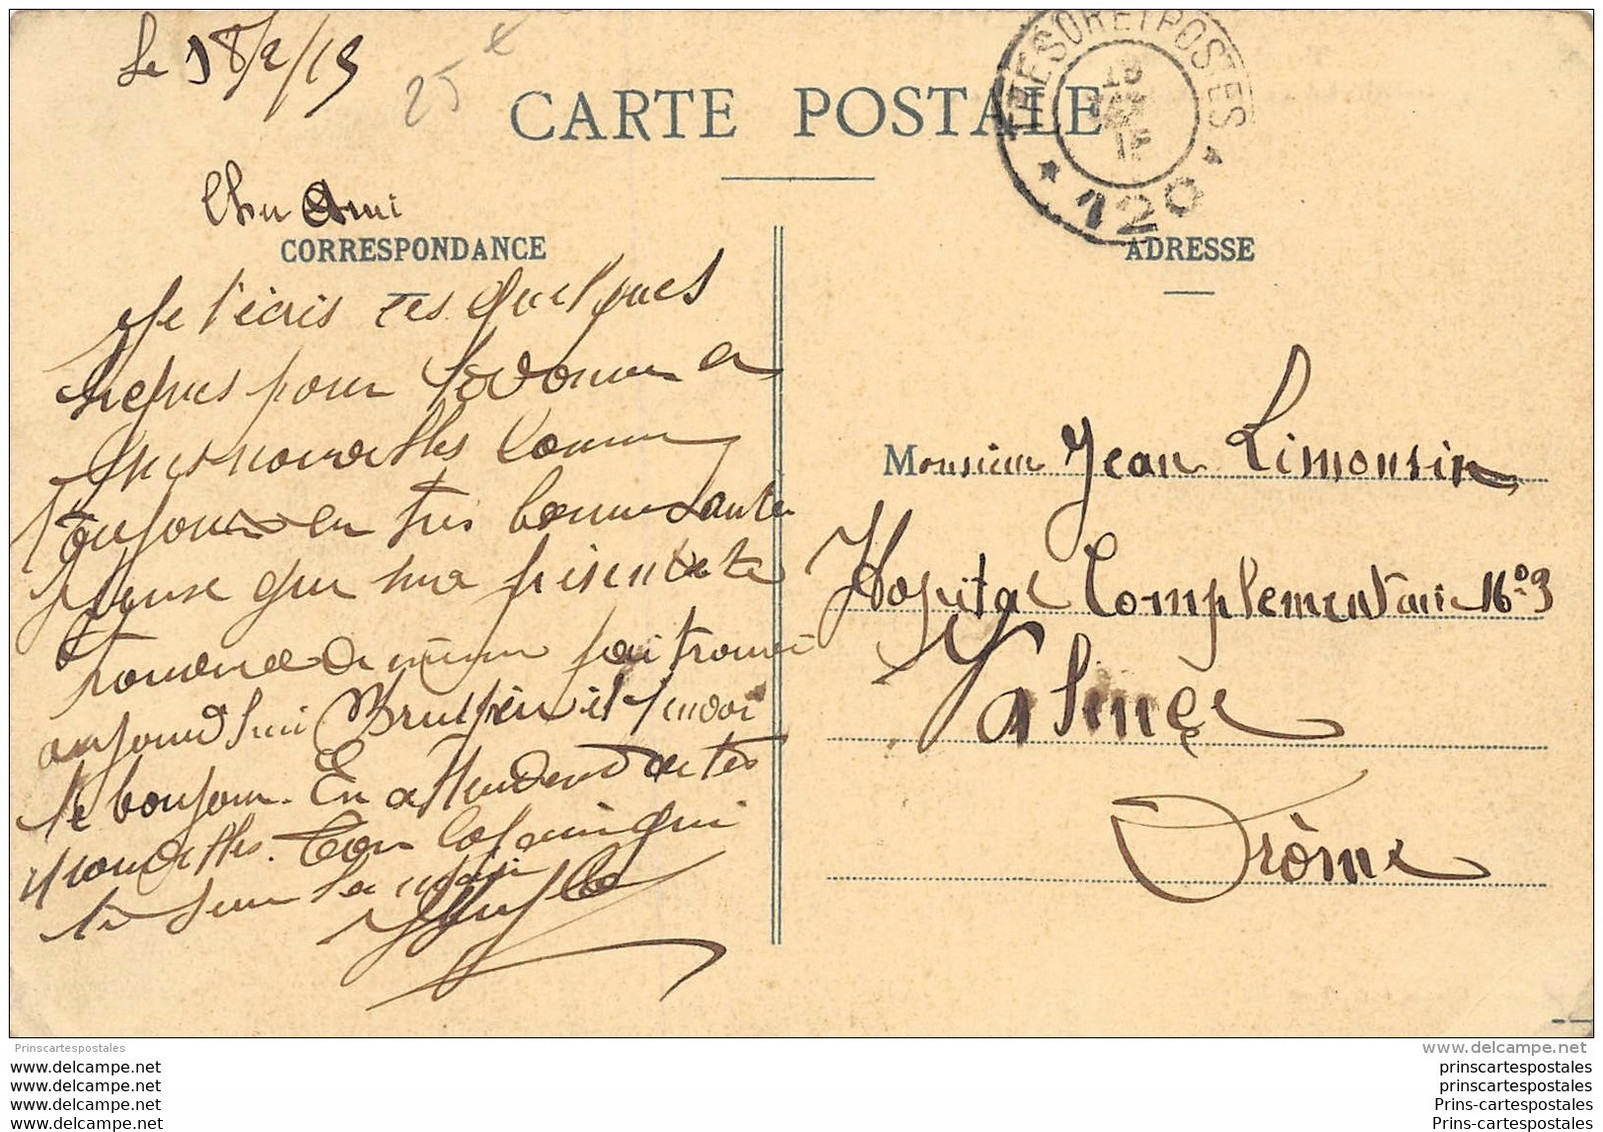 Le 18/2/15
25
CARTE POSTALE
TRESOR ET POSTES
18
15
* 120 *
Cher Ami
CORRESPONDANCE
ADRESSE
Je t'écris ces quelques
lignes pour te donner
mes nouvelles
toujours en très bonne santé
Pense que ma présente te
trouvera de même j'ai trouvé
aujourd'hui il t'envoi
le bonjour. En attendant de tes
nouvelles. Ton Copain qui
te serre la main
Monsieur Jean Limousin
Hopital Complementaire No 3
Valence
Drôme
Prinscartespostales
www.delcampe.net
www.delcampe.net
www.delcampe.net
www.delcampe.net
www.delcampe.net
prinscartespostales
prinscartespostales
Prins-cartespostales
Prins-cartespostales